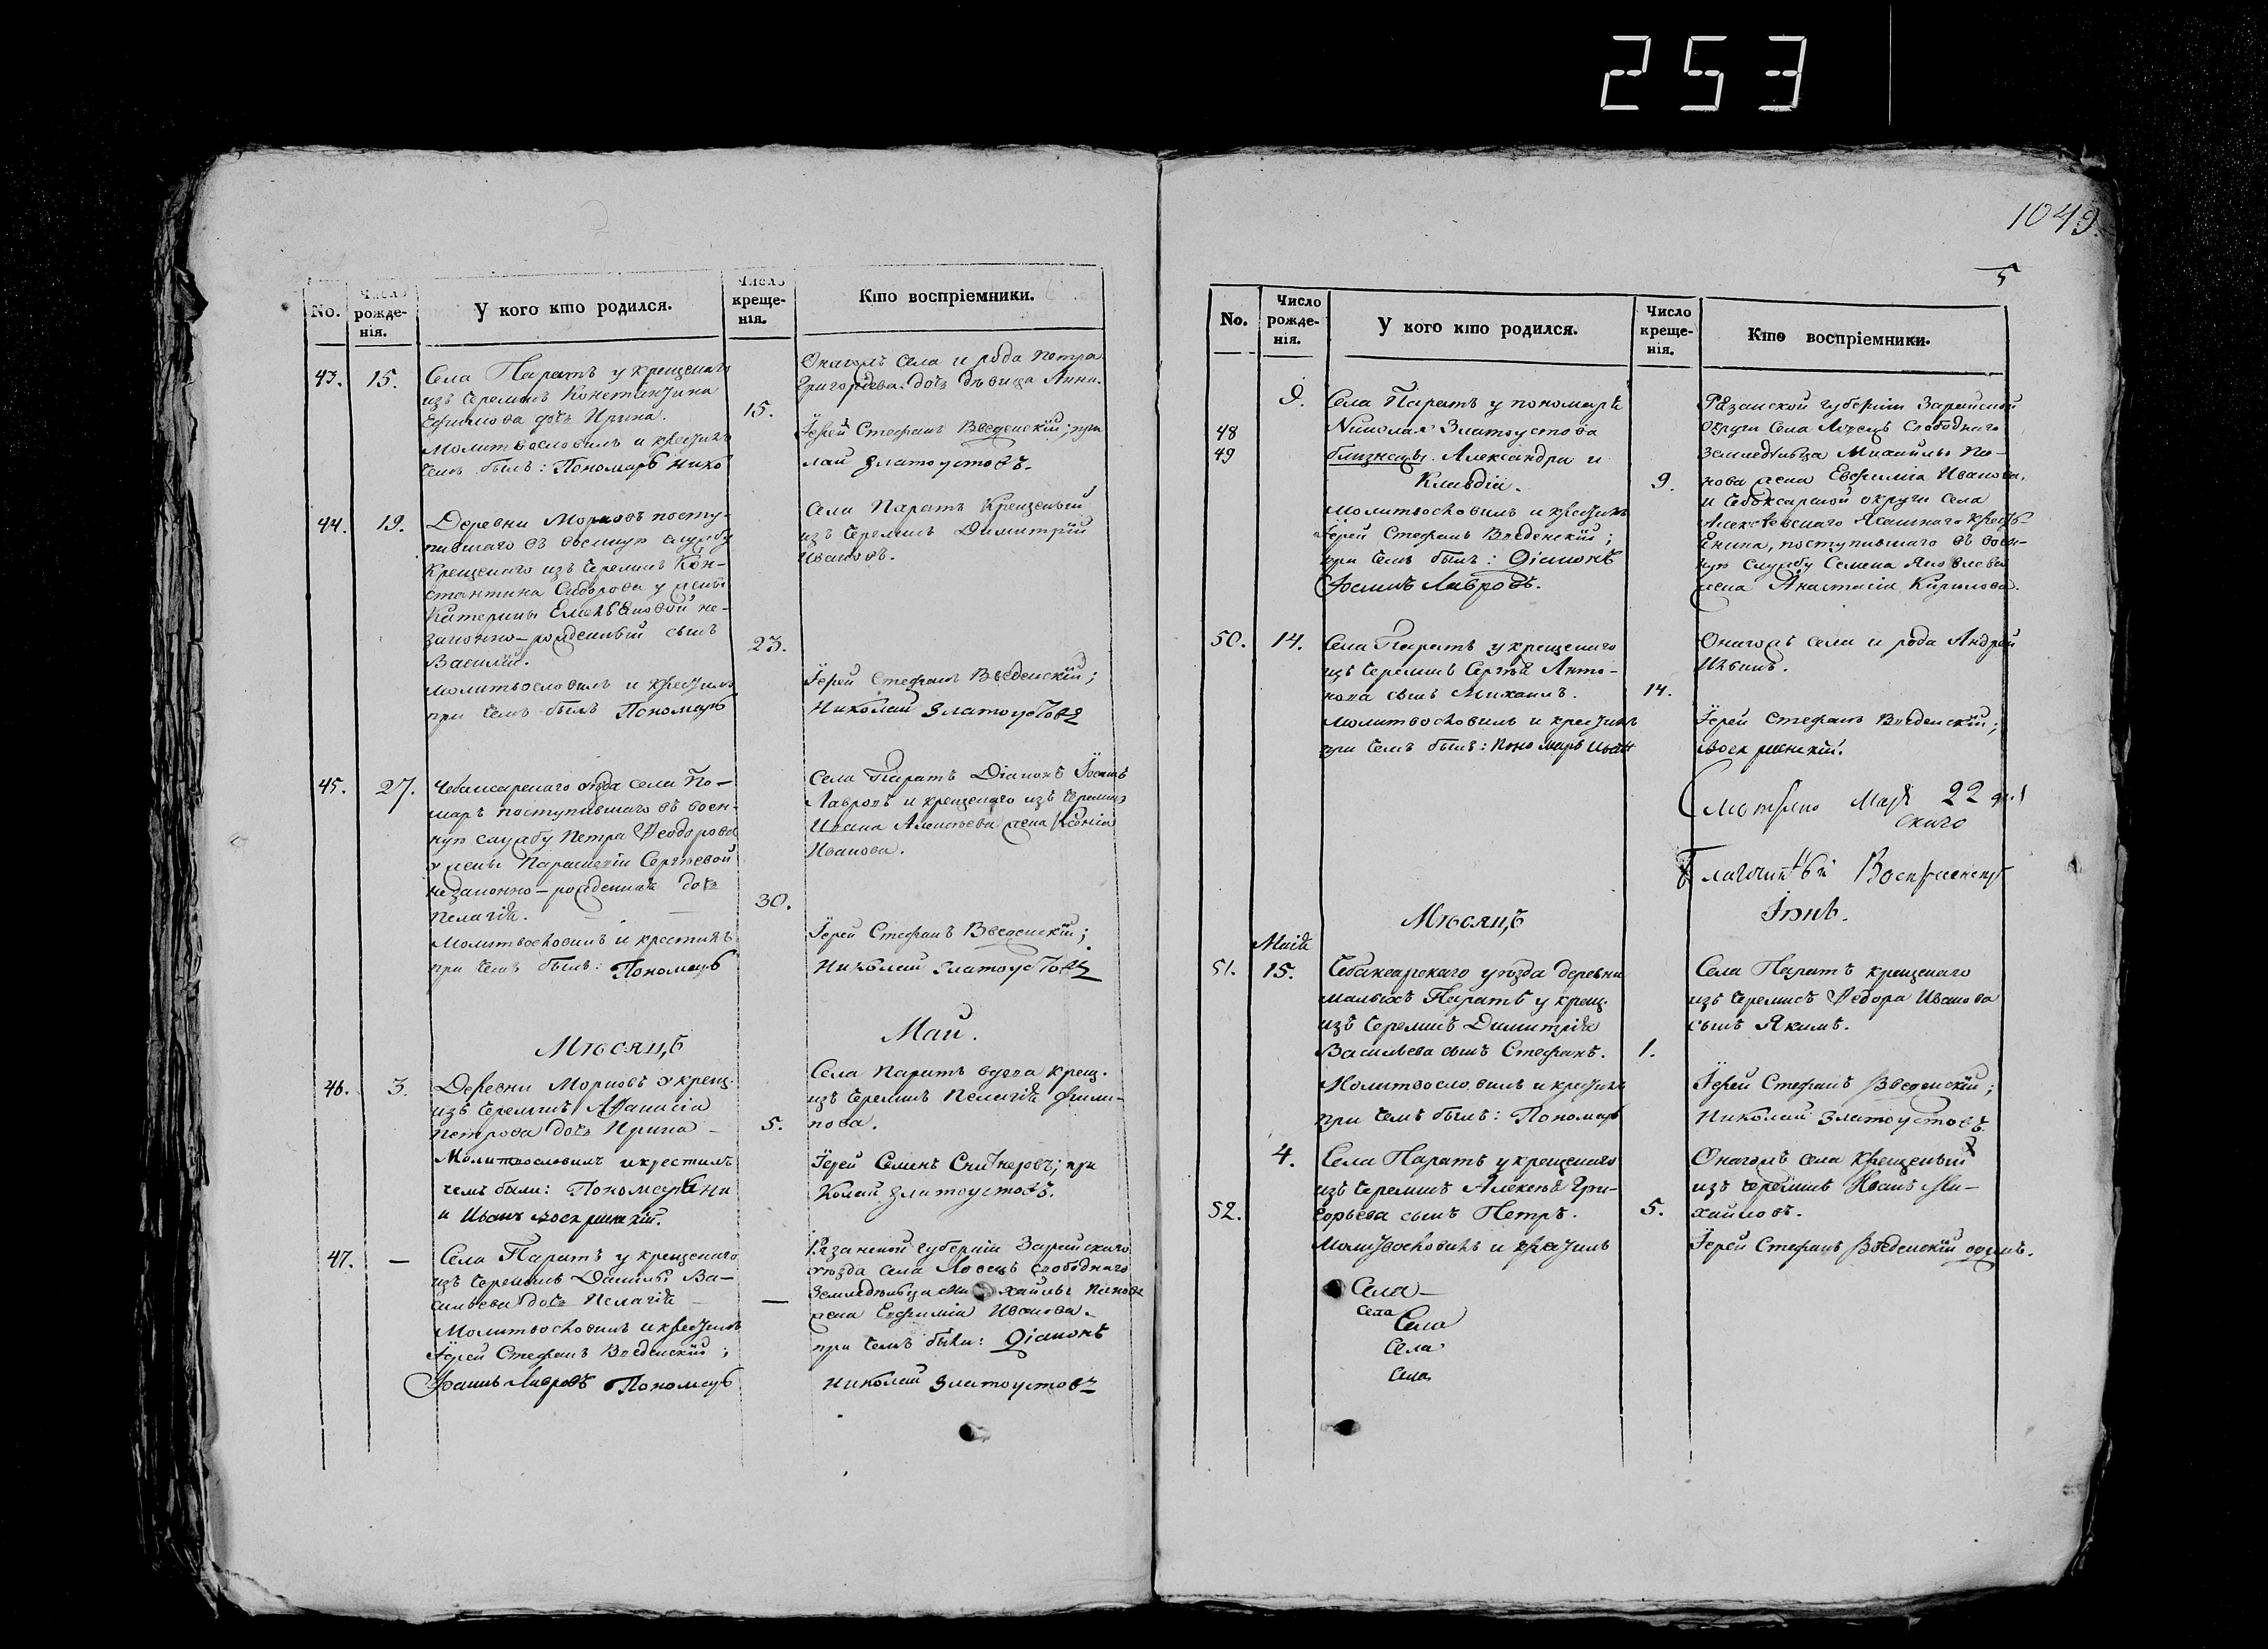 253
1049.
5
No.
Число рожде-нія.
У кого кто родился.
Число креще-нія.
Кто воспріемники.
43. 15.
Села Паратъ у крещенаго
изъ черемисъ Константина
Ефимова дочь Ирина.
молитвословилъ и крестилъ
чемъ былъ: Пономарь Нико
15.
Онагожъ села и рода Петра
Григорьева дочь дѣвица Анна.
Іерей Стефанъ Введенскій; при
лай Златоустовъ.
44. 19.
Деревни Морковъ посту-
пившаго въ военную службу
Крещенаго изъ черемисъ Кон-
стантина Сидорова у жены
Катерины Емельяновой не-
законно-рожденный сынъ
Василій.
молитвословилъ и крестилъ
при чемъ былъ Пономарь
23.
Села Паратъ Крещеный
изъ черемисъ Димитрій
Ивановъ.
Іерей Стефанъ Введенскій;
Николай Златоустовъ
45. 27.
Чебоксарскаго уѣзда села По-
маръ поступившаго въ воен-
ную службу Петра Ѳеодорова
у жены Параскевіи Сергѣевой
незаконно-рожденная дочь
Пелагія.
Молитвословилъ и крестилъ
при чемъ былъ: Пономарь
30.
Села Паратъ Діаконъ Іоаннъ
Лавровъ и крещенаго изъ черемисъ
Ивана Алексѣева жена Ксенія
Иванова.
Іерей Стефанъ Введенскій;
Николай Златоустовъ
Мѣсяцъ
Май.
46. 3.
Деревни Морковъ у крещ.
изъ черемисъ Аѳанасія
Петрова дочь Ирина
Молитвословилъ и крестилъ
чемъ были: Пономари Ни
и Иванъ Воскресенскій.
5.
Села Паратъ вдова крещ.
изъ черемисъ Пелагія Фили-
пова.
Іерей Семенъ; при
колай Златоустовъ.
47. —
Села Паратъ у крещенаго
изъ черемисъ Данилы Ва-
сильева дочь Пелагія
Молитвословилъ и крестилъ
Іерей Стефанъ Введенскій;
Іоаннъ Лавровъ Пономарь
—
Рязанской губерніи Зарайскаго
уѣзда села Ловецъ свободнаго
Земледѣльца Михайлы Панова
жена Евфимія Иванова.
при чемъ были: Діаконъ
Николай Златоустовъ
No.
Число рожде-нія.
У кого кто родился.
Число креще-нія.
Кто воспріемники.
9.
48
49
Села Паратъ у пономаря
Николая Златоустова
близнецы Александра и
Клавдія.
молитвословилъ и крестилъ
Іерей Стефанъ Введенскій;
при чемъ былъ: Діаконъ
Іоаннъ Лавровъ.
9.
Рязанской губерніи Зарайской
округи села Ловецъ Свободнаго
земледѣльца Михайлы Па-
нова жена Евфимія Иванова,
и Чебоксарской округи села
Алексѣевскаго Ясашнаго кресть-
янина, поступившаго въ воен-
ную службу Семена Яковлева
жена Анастасія Кирилова.
50. 14.
Села Паратъ у крещенаго
изъ черемисъ Сергѣя Анто-
нова сынъ Михаилъ.
молитвословилъ и крестилъ
при чемъ былъ: Пономарь Иванъ
14.
Онагожъ села и рода Андрей
Ильинъ.
Іерей Стефанъ Введенскій;
Воскресенскій.
Смотрено Майя 22 дня
Благочинный Воскресенскій
Мѣсяцъ
Іюнь.
51.
Майя
15.
Чебоксарскаго уѣзда деревни
малыхъ Паратъ у крещ.
изъ черемисъ Димитрія
Васильева сынъ Стефанъ.
Молитвословилъ и крестилъ
при чемъ былъ: Пономарь
1.
Села Паратъ крещенаго
изъ черемисъ Ѳедора Иванова
сынъ Якимъ.
Іерей Стефанъ Введенскій;
Николай Златоустовъ.
52.
4.
Села Паратъ у крещенаго
изъ черемисъ Алексѣя Гри-
горьева сынъ Петръ.
Молитвословилъ и крестилъ
5.
Онагожъ села Крещеный
изъ черемисъ Иванъ Ми-
хайловъ.
Іерей Стефанъ Введенскій одинъ.
Села
Села
Села
Села
Села